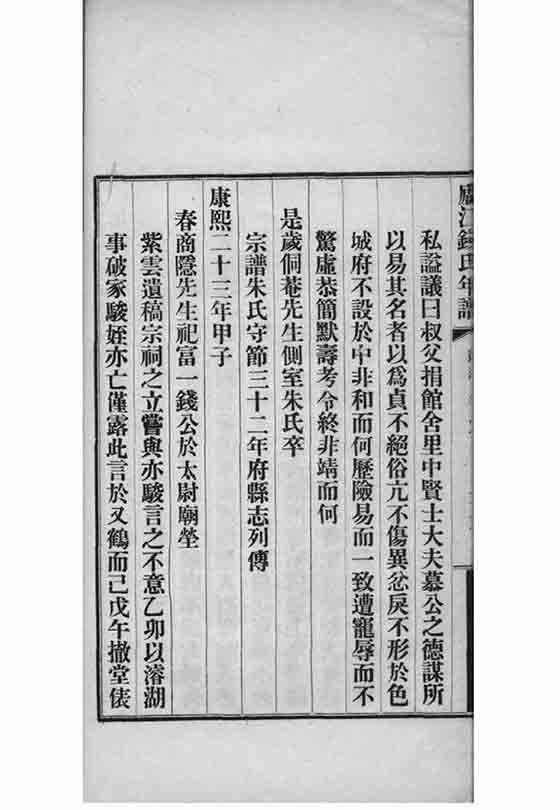 廬江錢氏年譜
私謚議曰叔父捐館舍里中賢士大夫慕公之德謀所
以易其名者以爲貞不絕俗亢不傷異忿戾不形於色
城府不設於中非和而何歷險易而一致遭寵辱而不
驚虛恭簡默壽考令終非靖而何
是歲侗菴先生側室朱氏卒
宗譜朱氏守節三十二年府縣志列傳
康熙二十三年甲子
春商隱先生祀富一錢公於太尉廟塋
紫雲遺稿宗祠之立嘗與亦駿言之不意乙卯以濬湖
事破家駿姪亦亡僅露此言於又鶴而己戊午撤堂俵